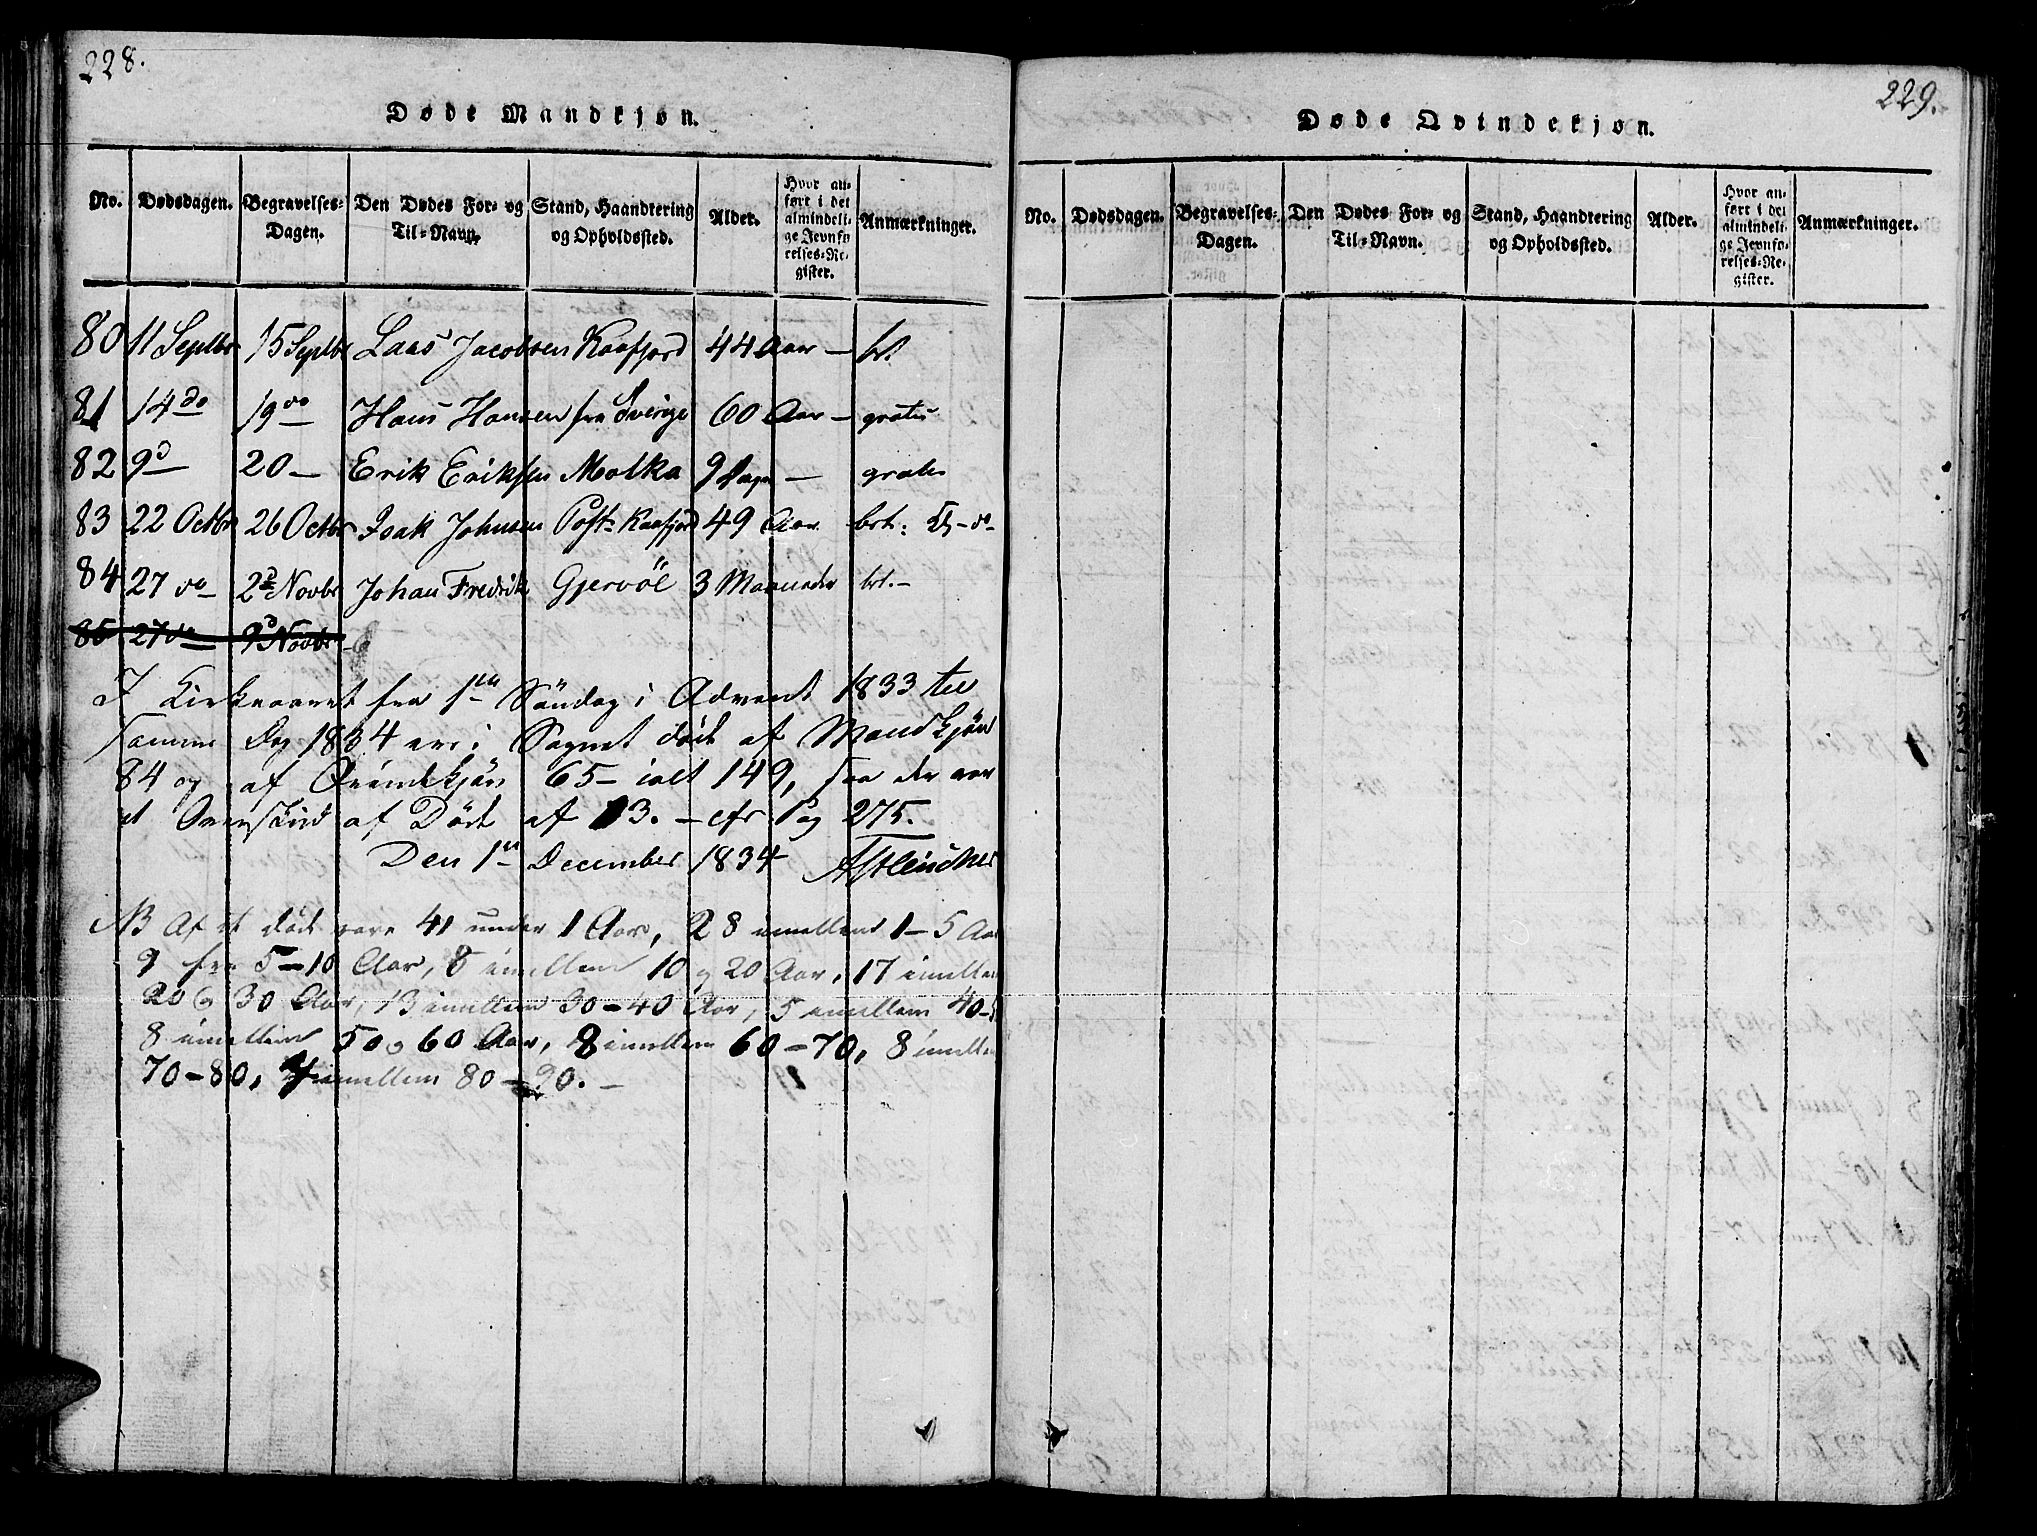 228.
Døde Mandkjøn.
No. Dødsdagen. Begravelses-Dagen. Den Dødes For- og Til-Navn. Stand, Haandtering og Opholdssted. Alder. Hvor anført i det almindelige Jevnførelses-Register. Anmærkninger.
80 11 Septbr 15 Septbr Lars Jacobsen Kaafjord 44 Aar – bt.
81 14 do 19 do Hans Hansen fra Sverige 60 Aar – gratis
82 9 d 20 – Erik Eriksen Molka 9 Dage – gratis
83 22 Octbr 26 Octbr Isak Johnsen Kaafjord 49 Aar
84 27 do 2d Novbr Johan Fredrik Gjervöl 3 Maaneder bt. –
85 27 do 9d Novbr
I Kirkeaaret fra 1ste Söndag i Advent 1833 til
samme Dag 1834 ere i Sognet döde af Mandkjön
84 og af Qvindekjön 65 – ialt 149, saa der var
et Overskud af Döde af 13. – cfr Pag 275.
Den 1ste December 1834
NB Af de döde vare 41 under 1 Aar, 28 imellem 1 – 5 Aar
9 fra 5 – 10 Aar, 8 imellem 10 og 20 Aar, 17 imellem
20 og 30 Aar, 13 imellem 30 – 40 Aar, 5 imellem 40 –
8 imellem 50 og 60 Aar, 8 imellem 60 – 70, 8 imellem
70 – 80, 4 imellem 80 – 90. –
229.
Døde Qvindekjøn.
No. Dødsdagen. Begravelses-Dagen. Den Dødes For- og Til-Navn. Stand, Haandtering og Opholdssted. Alder. Hvor anført i det almindelige Jevnførelses-Register. Anmærkninger.